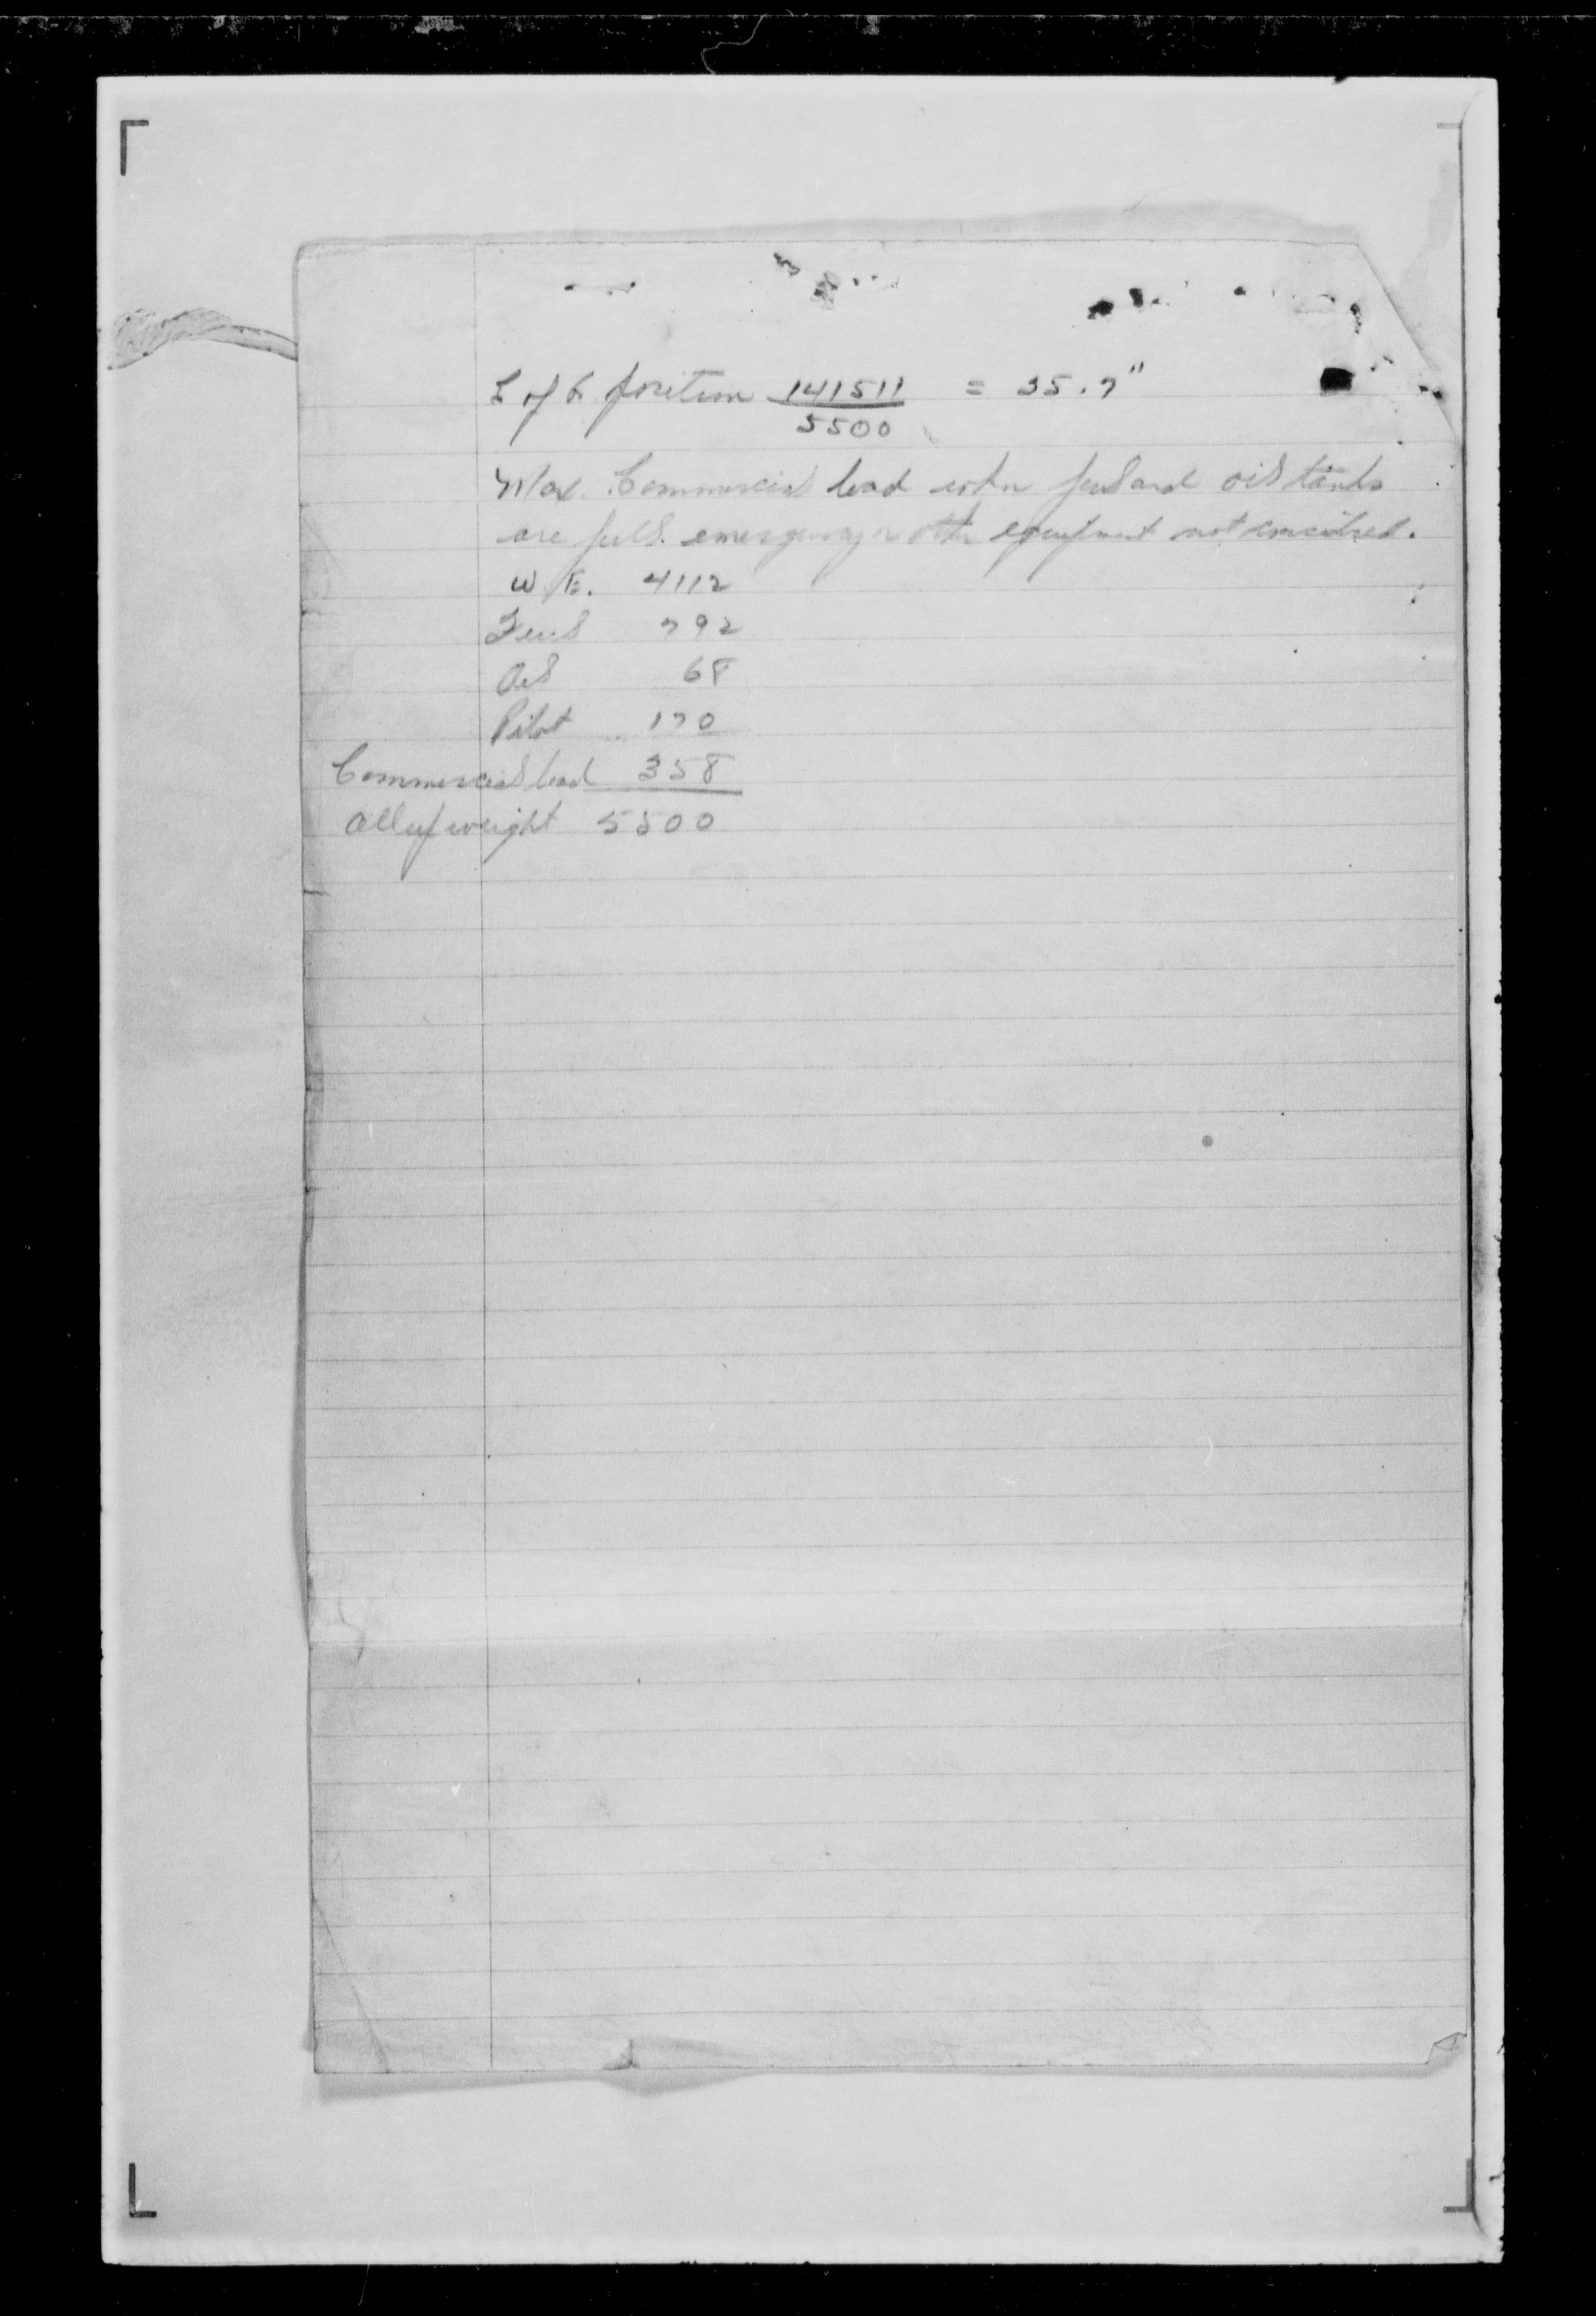 C of G position 141511 = 25.7"
5500
Max. Commercial load when fuel and oil tanks
are full. emergency or other equipment not
W E. 4112
Fuel 792
Oil 68
Pilot 170
Commercial load 358
All up weight 5500